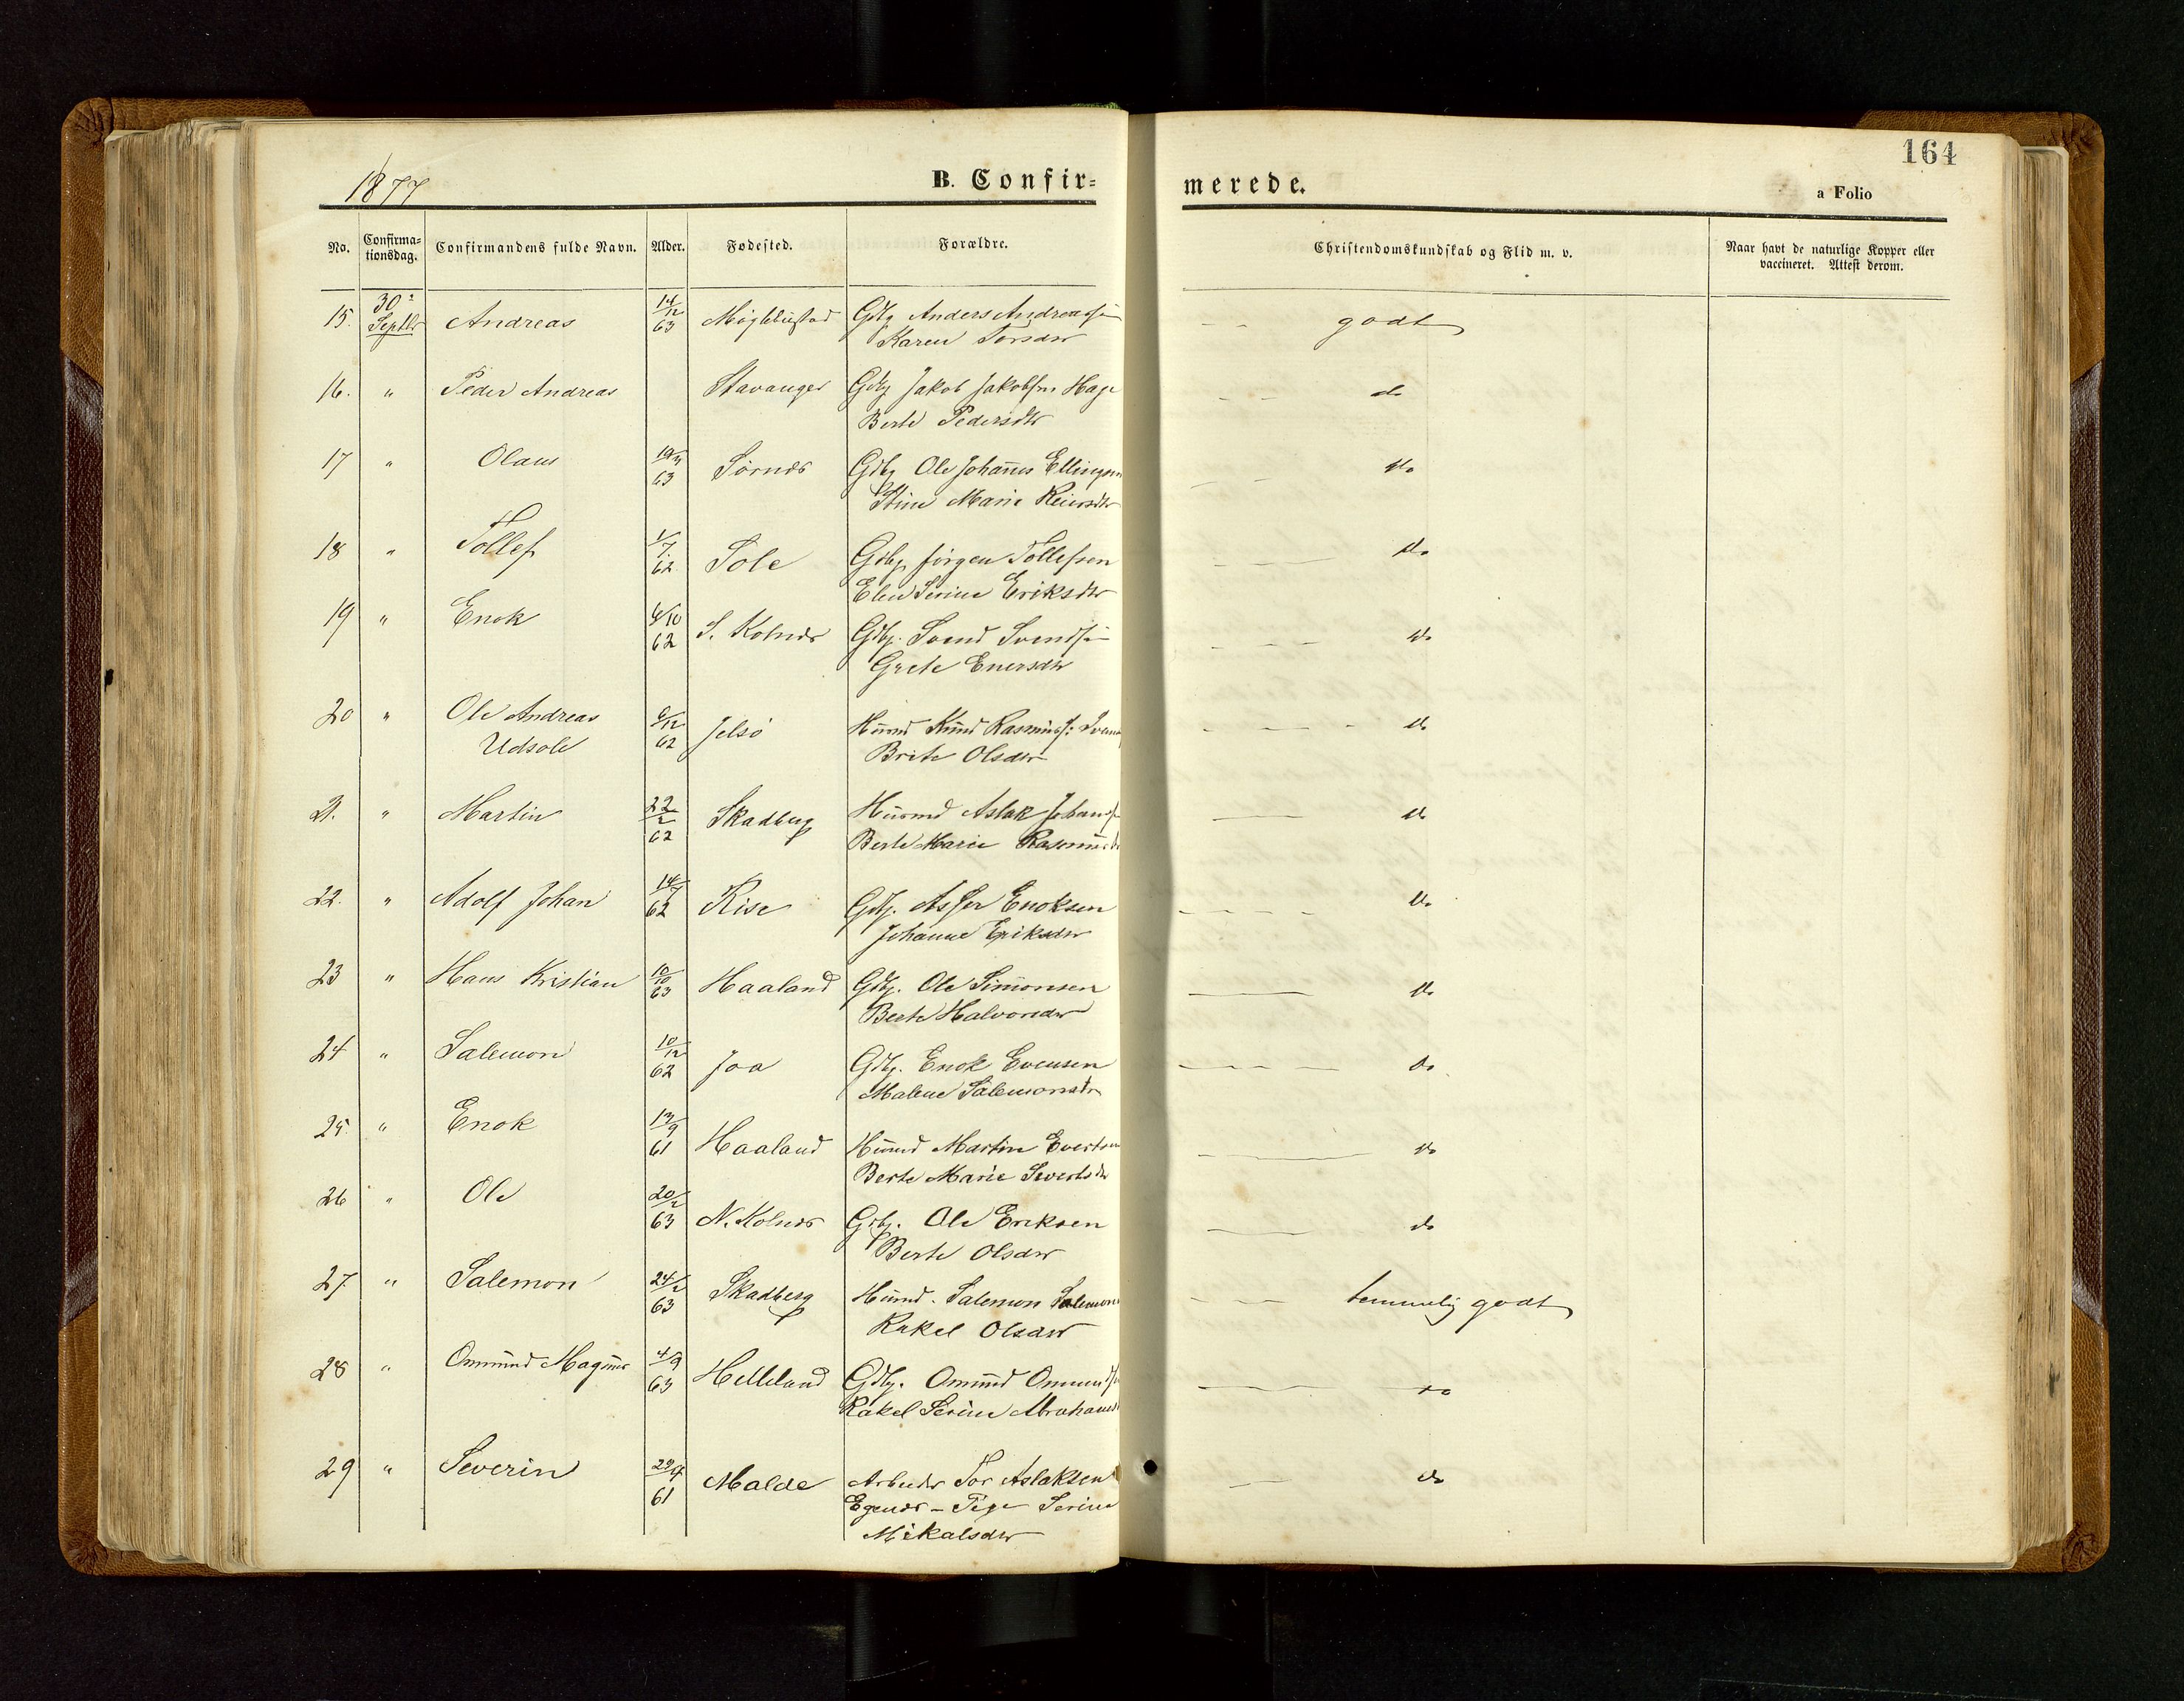 164
1877
B. Confir=
merede.
a Folio
No.
Confirma=
tionsdag.
Confirmandens fulde Navn.
Alder.
Fødested.
Forældre.
Christendomskundskab og Flid m. v.
Naar havt de naturlige Kopper eller
vaccineret. Attest derom.
15. 30 Septbr Andreas 14/12 63 Gdbg Anders
Karen godt
16. " Peder Andreas Stavanger Gdbg Jakob Jakobsen Hage do
Berte Pedersdtr
17 " Olaus 19/11 63 Sörnes Gdbg Ole Johannes Ellingsen do
Stine Marie Reiersdtr
18 " Tollef 1/7 62 Sole Gdbg. Jörgen Tollefsen do
Elen Serine Eriksdtr
19 " Enok 6/10 62 S. Kolnes Gdbg. Svend Svends do
Grete Enersdtr
20 " Ole Andreas 6/12 62 Jelsö Husmd Knud Rasmuss: do
Udsole Brite Olsdtr
21. " Martin 22/2 62 Skadberg Husmd Aslak do
Berte Marie
22. " Adolf Johan 14/7 62 Risc Gdbg. Asser Enoksen do
Johanne Eriksdtr
23 " Hans Kristian 10/10 63 Haaland Gdbg. Ole Simonsen do
Berte Halvorsdtr
24 " Salemon 10/12 62 Joa Gdbg. Enok Evensen do
Malene Salemonsdtr
25. " Enok 13/9 61 Haaland Husmd Martin Evertsen do
Berte Marie Sivertsdtr
26 " Ole 20/2 63 N. Kolnes Gdbg. Ole Eriksen do
Berte Olsdtr
27 " Salemon 24/2 63 Skadberg Husmd. Salemon Salemons temmelig godt
Rakel Olsdtr
28 " Ommund Magnus 4/9 63 Helleland Gdbg. Omund Omunds do
Rakel Serine Abrahams
29 " Severin 29/4 61 Malde Arbeider Tor Aslaksen do
Egenes – Pige Serine
Mikalsdtr